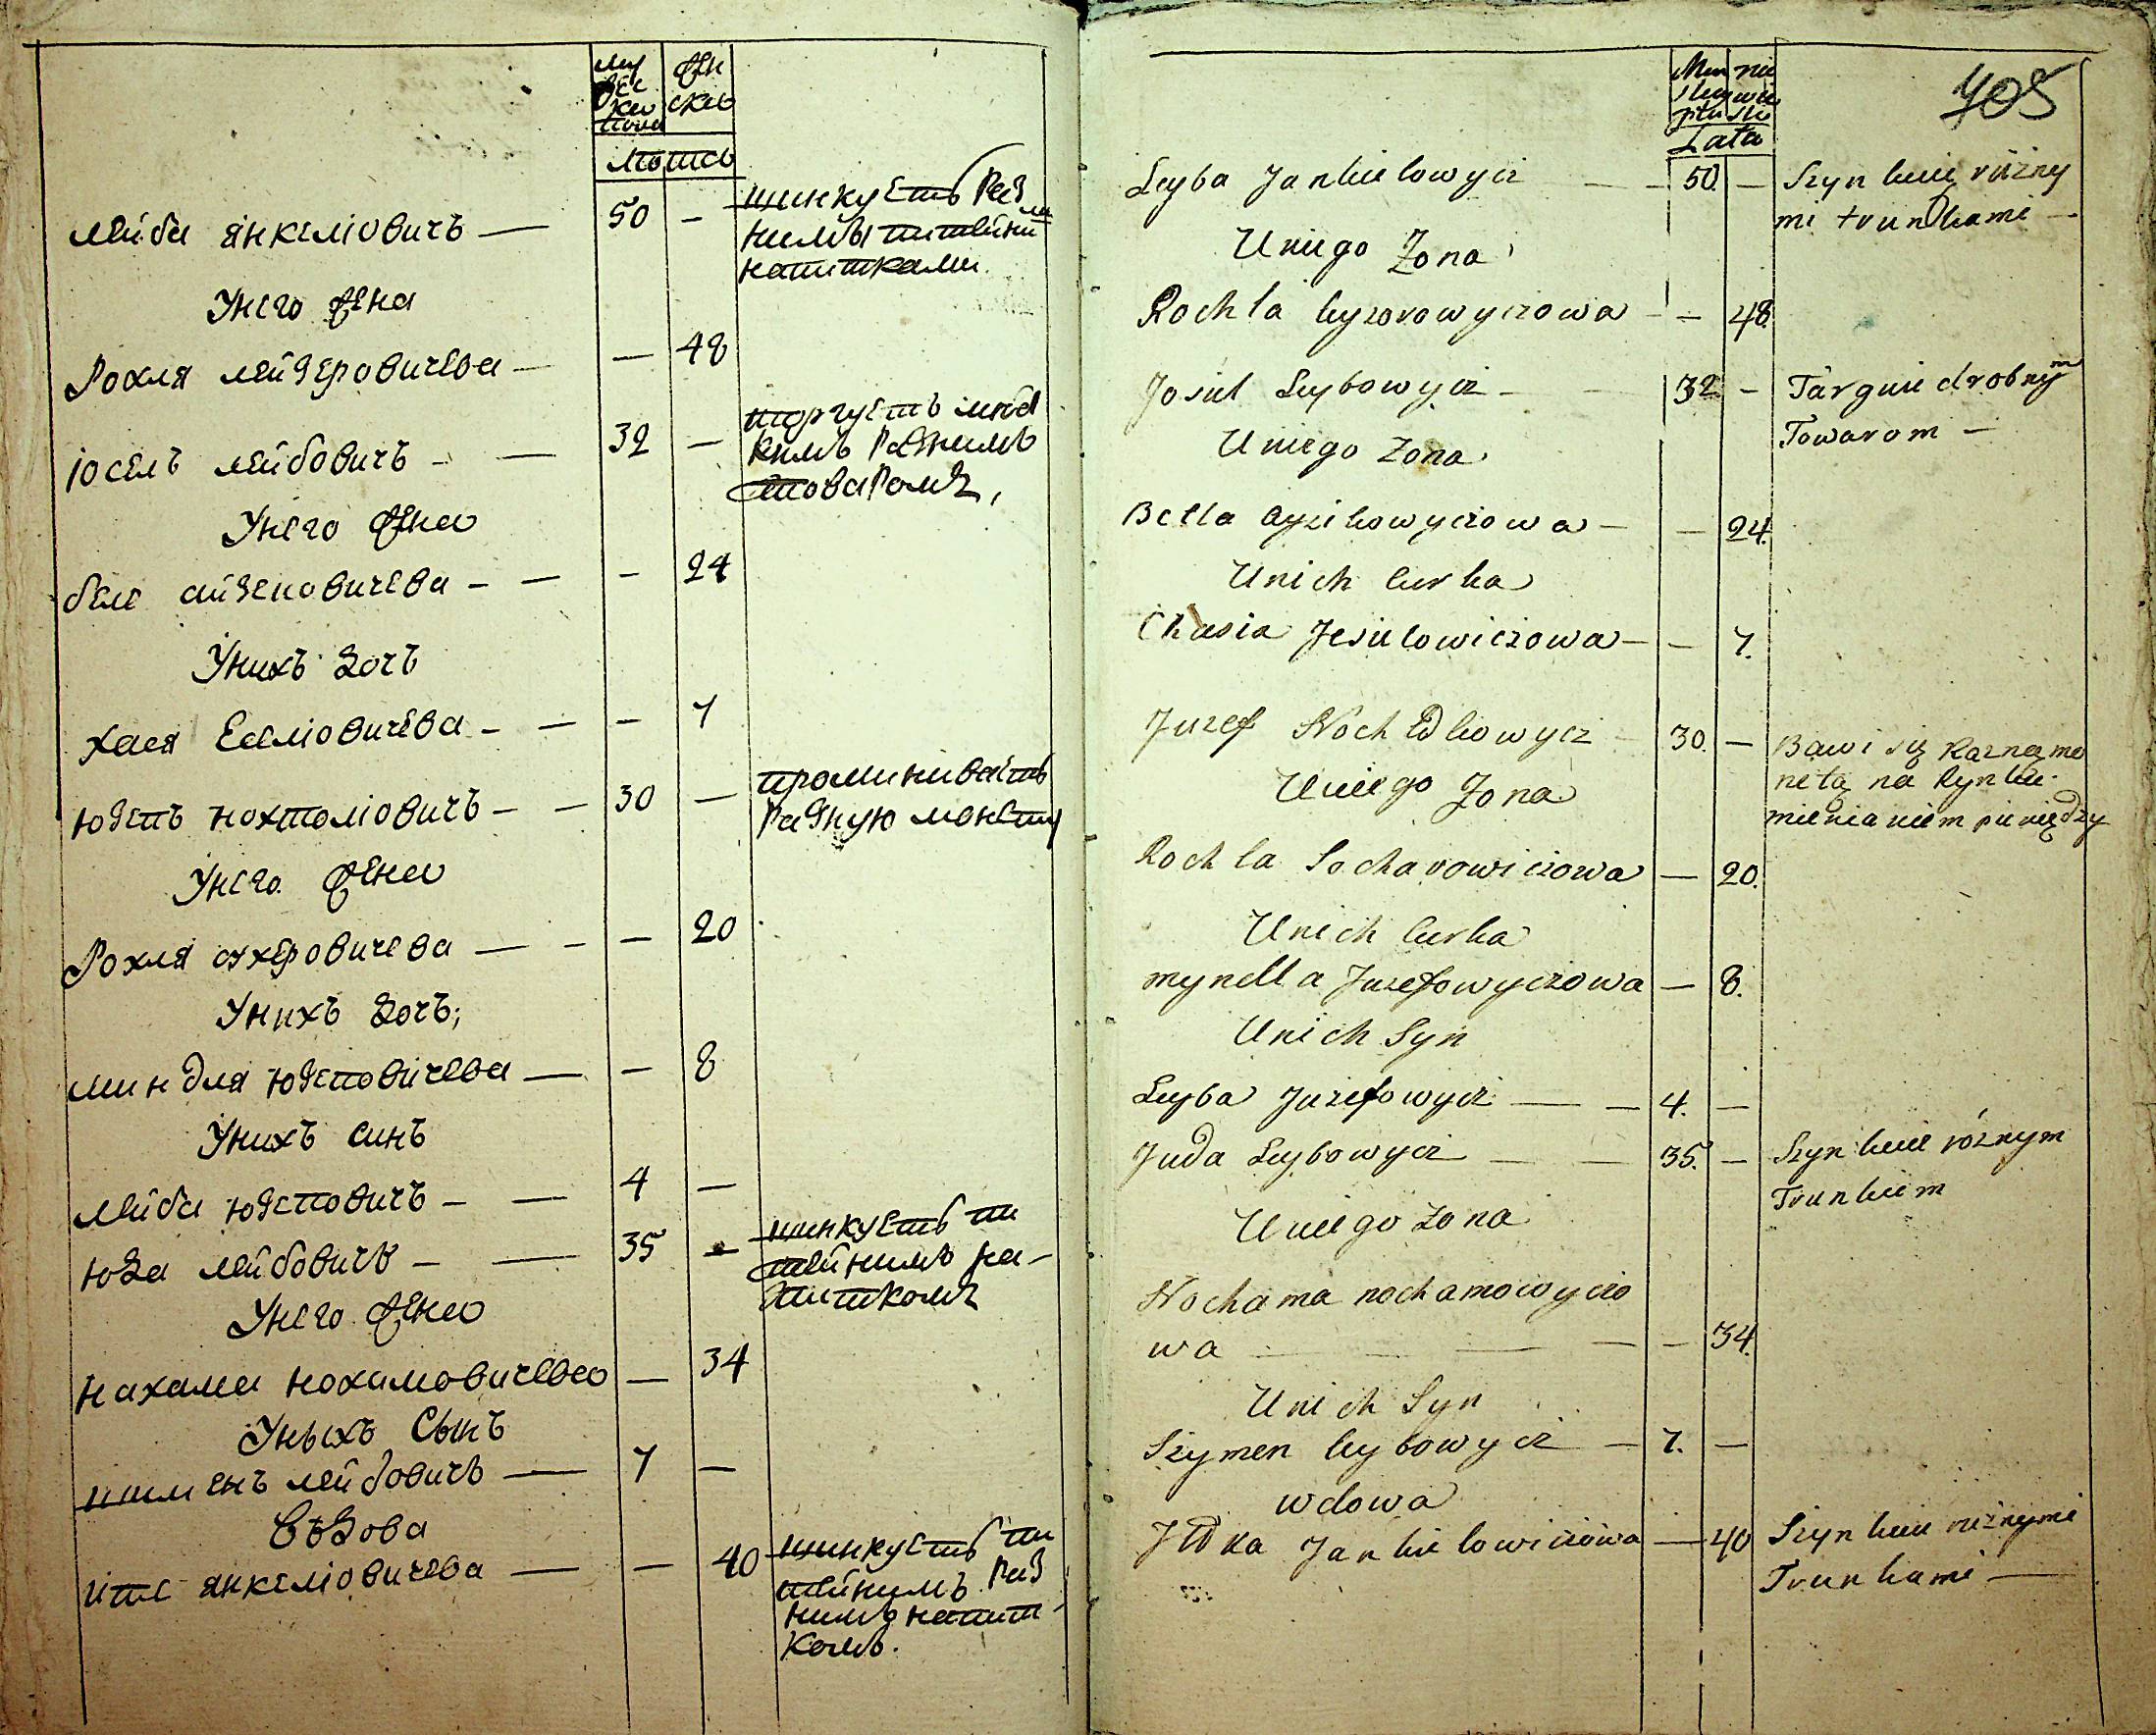 му
жес
ка
пола
жен
ска
лѣта
Лейба Янкеліовичъ — 50 —
шинкуетъ раз
ними питейни
ми
напитками.
Унего жена
Рохля Лейзеровичева — — 48
Іосель Лейбовичъ — — 32 —
торгуетъ мел
кимъ разнимъ
товаромъ,
Унего жена
беле айзековичева — — — 24
Унихъ дочъ
Хася Еселіовичева — — — 7
Юзепъ Нохталіовичъ — — 30 —
променяваетъ
разную монету
Унего жена
Рохля сухеровичева — — — 20
Унихъ дочъ;
миндля юзеповичева — — 8
Унихъ синъ
Лейба юзеповичъ — — 4 —
юда лейбовичъ — — 35 —
шинкуетъ пи
тейнимъ на-
питкомъ
Унего жена
Нахама нохамовичева — 34
Уныхъ Сынъ
шименъ лейбовичъ — 7 —
Въдова
ите янкеліовичева — — 40
шинкуетъ пи
тейнимъ раз
нимъ напит
комъ.
405
Męs
na
skey
wie
płu
sie
Lata
Leyba Jankielowycz — 50. — Szynkuię różny
mi trunkami —
Uniego Zona
Rochla leyzorowyczowa — — 48.
Josiel Leybowycz — 32 — Targuie drobnym
Towarom —
Uniego Zona
Bella ayzikowyczowa — — 24.
Unich Curka
Chasia Jesielowiczowa — — 7.
Juzef Nochtoliowycz — 30. — Bawi się Razną mo
netą na Rynku
mienianiem pieniędzy
Uniego Zona
Rochla Socharowiczowa — 20.
Unich Curka
myndla Juzefowyczowa — 8.
Unich Syn
Leyba Juzefowycz — — 4. —
Juda Leybowycz — — 35. — Szynkuie róznym
Trunkiem
Uniego zona
Nochama nochamowyczo
wa — — — — — 34.
Unich Syn
Szymen leybowycz — 7. —
wdowa
Jtka Jankielowiczowa — 40 Szynkuie rużnymi
Trunkami —